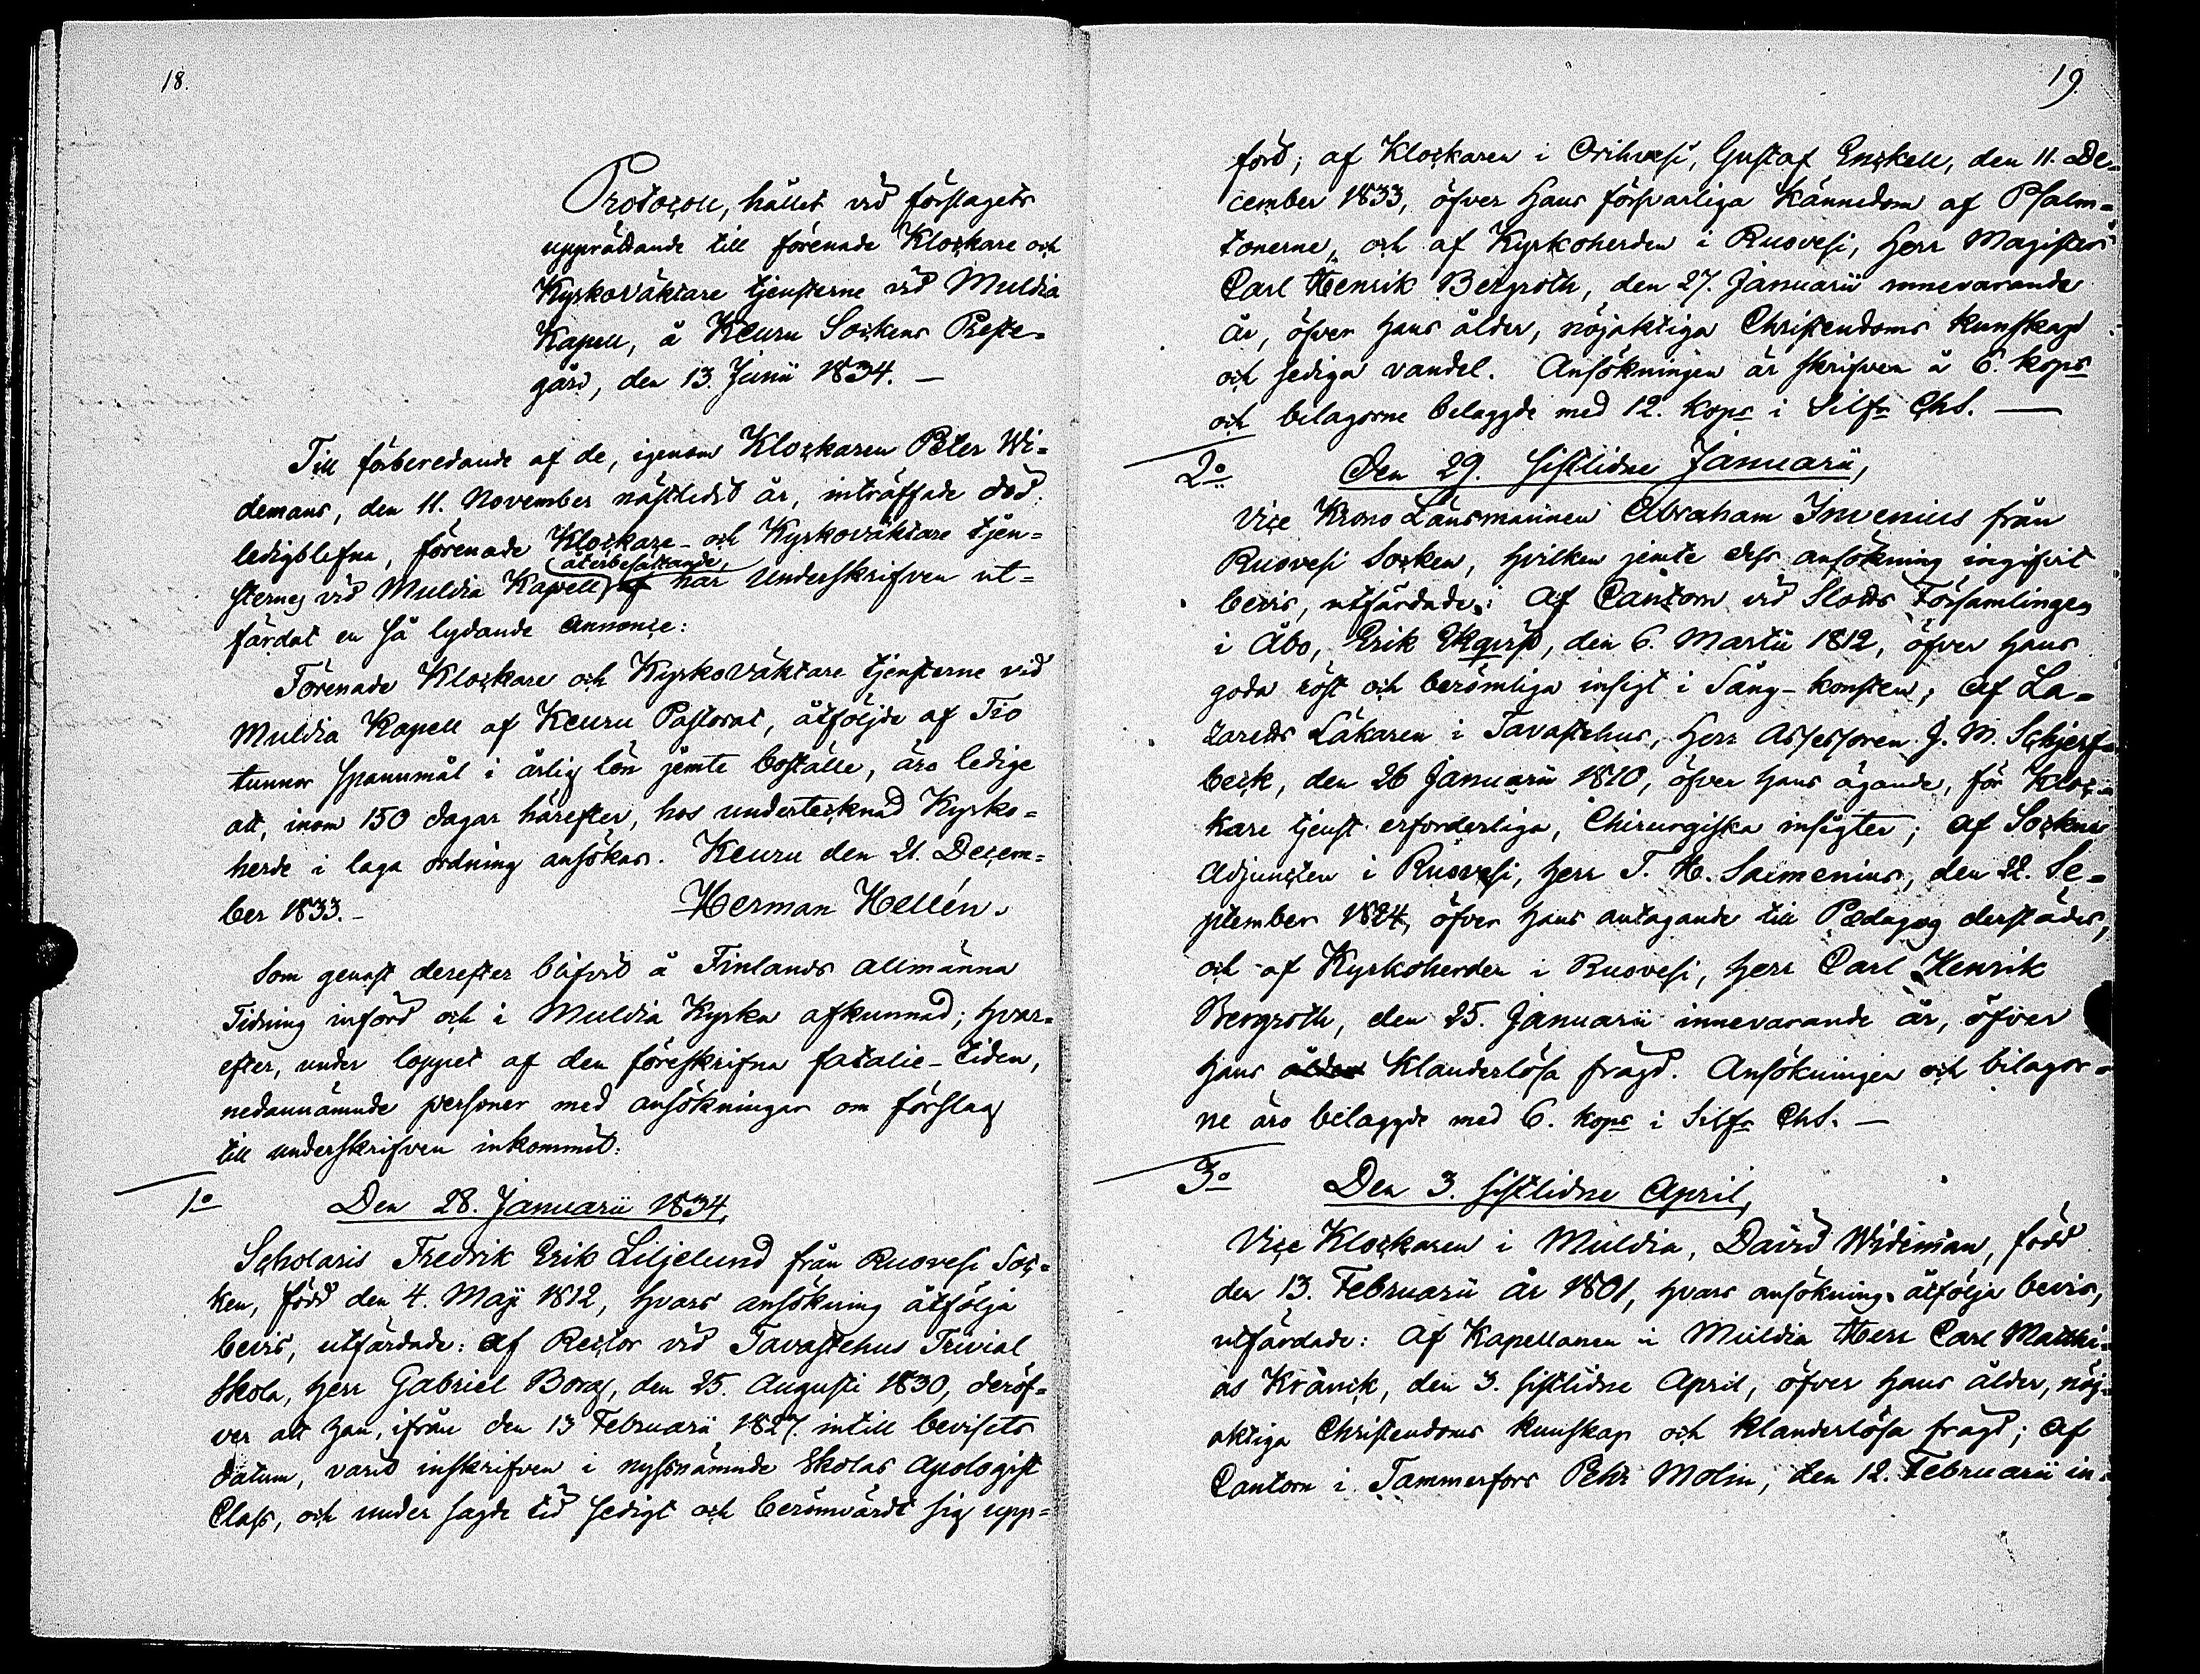 18.
Protocoll, hållet vid förslagets
upprättande till förenade Klockare och
Kyrkoväktare tjensterne vid Muldia
Kapell, å Keuru Sockens Preste-
gård, den 13. Junii 1834. —
Till förberedande af de, igenom Klockaren Peter Wi-
demans, den 11. November nästledit år, inträffade död
ledigblefne, förenade Klockare- och Kyrkoväktare tjen-
återbesättande
sternes vid Muldia Kapell af har Underskrifven ut-
färdat en så lydande Annonce:
Förenade Klockare och Kyrkoväktare tjensterne vid
Muldia Kapell af Keuru Pastorat, åtföljde af Tio
tunnor spannmål i årlig lön jemte boställe, äro ledige
att, inom 150 dagar härefter, hos undertecknad Kyrko-
herde i laga ordning ansökas. Keuru den 21. Decem-
ber 1833.-
Herman Hellén.
Som genast derefter blifvit å Finlands Allmänna
Tidning införd och i Muldia Kyrka afkunnad; hvar-
efter, under loppet af den föreskrifna fatalie-tiden,
nedannämnde personer med ansökningar om förslag
till underskrifven inkommit:
1o Den 28. Januarii 1834,
Scholaris Fredrik Erik Liljelund från Ruovesi Soc-
ken, född den 4. Maji 1812, hvars ansökning åtfölja
bevis, utfärdade: af Rector vid Tavastehus Trivial
Skola, Herr Gabriel Borg, den 25. Augusti 1830, deröf-
ver att han, ifrån den 13 Februarii 1827. intill bevisets
datum, varit inskrifven i nyssnämnde Skolas Apologist
Class, och under sagde tid sedigt och berömvärdt sig upp-
19.
förd; af Klockaren i Orihvesi, Gustaf Enckell, den 11. De-
cember 1833, öfver Hans försvarliga Kännedom af Psalm-
tonerne, och af Kyrkoherden i Ruovesi, Herr Magister
Carl Henrik Bergroth, den 27. Januarii innevarande
år, öfver hans ålder, nöjaktiga Christendoms kunskap
och sediga vandel. Ansökningen är skrifven å 6. kops
och bilagorne belaggde med 12. kops i Silfr Chs. —
2o Den 29. sistlidne Januarii,
Vice Krono Länsmannen Abraham Invenius från
Ruovesi Socken, hvilken jemte dess ansökning ingifvit
bevis, utfärdade: Af Cantorn vid Slotts Församlingen
i Åbo, Erik Ekqvist, den 6. Martii 1812, öfver hans
goda röst och berömliga insigt i Sång-konsten; Af La-
zaretts Läkaren i Tavastehus, Herr Assessoren J. M. Schjerf-
beck, den 26 Januarii 1810, öfver hans ägande, för Kloc-
kare tjenst erforderliga, Chirurgiska insigter; Af Sockne
Adjuncten i Ruovesi, Herr T. H. Saimenius, den 22. Se-
ptember 1824, öfver hans antagande till Pædagog derstädes,
och af Kyrkoherden i Ruovesi, Herr Carl Henrik
Bergroth, den 25. Januarii innevarande år, öfver
hans ålder Klanderlösa frägd. Ansökningen och bilagor-
ne äro belaggde med 6. kops i Silfr Chs. —
3o Den 3. sistlidne April,
Vice Klockaren i Muldia, David Wideman, född
den 13. Februarii år 1801, hvars ansökning åtfölja bevis,
utfärdade: Af Kapellanen i Muldia Herr Carl Matthi-
as Kränik, den 3. sistlidne April, öfver hans ålder, nöj-
aktiga Christendoms kunskap och klanderlösa frägd; Af
Cantorn i Tammerfors Pehr Molin, den 12. Februarii in-